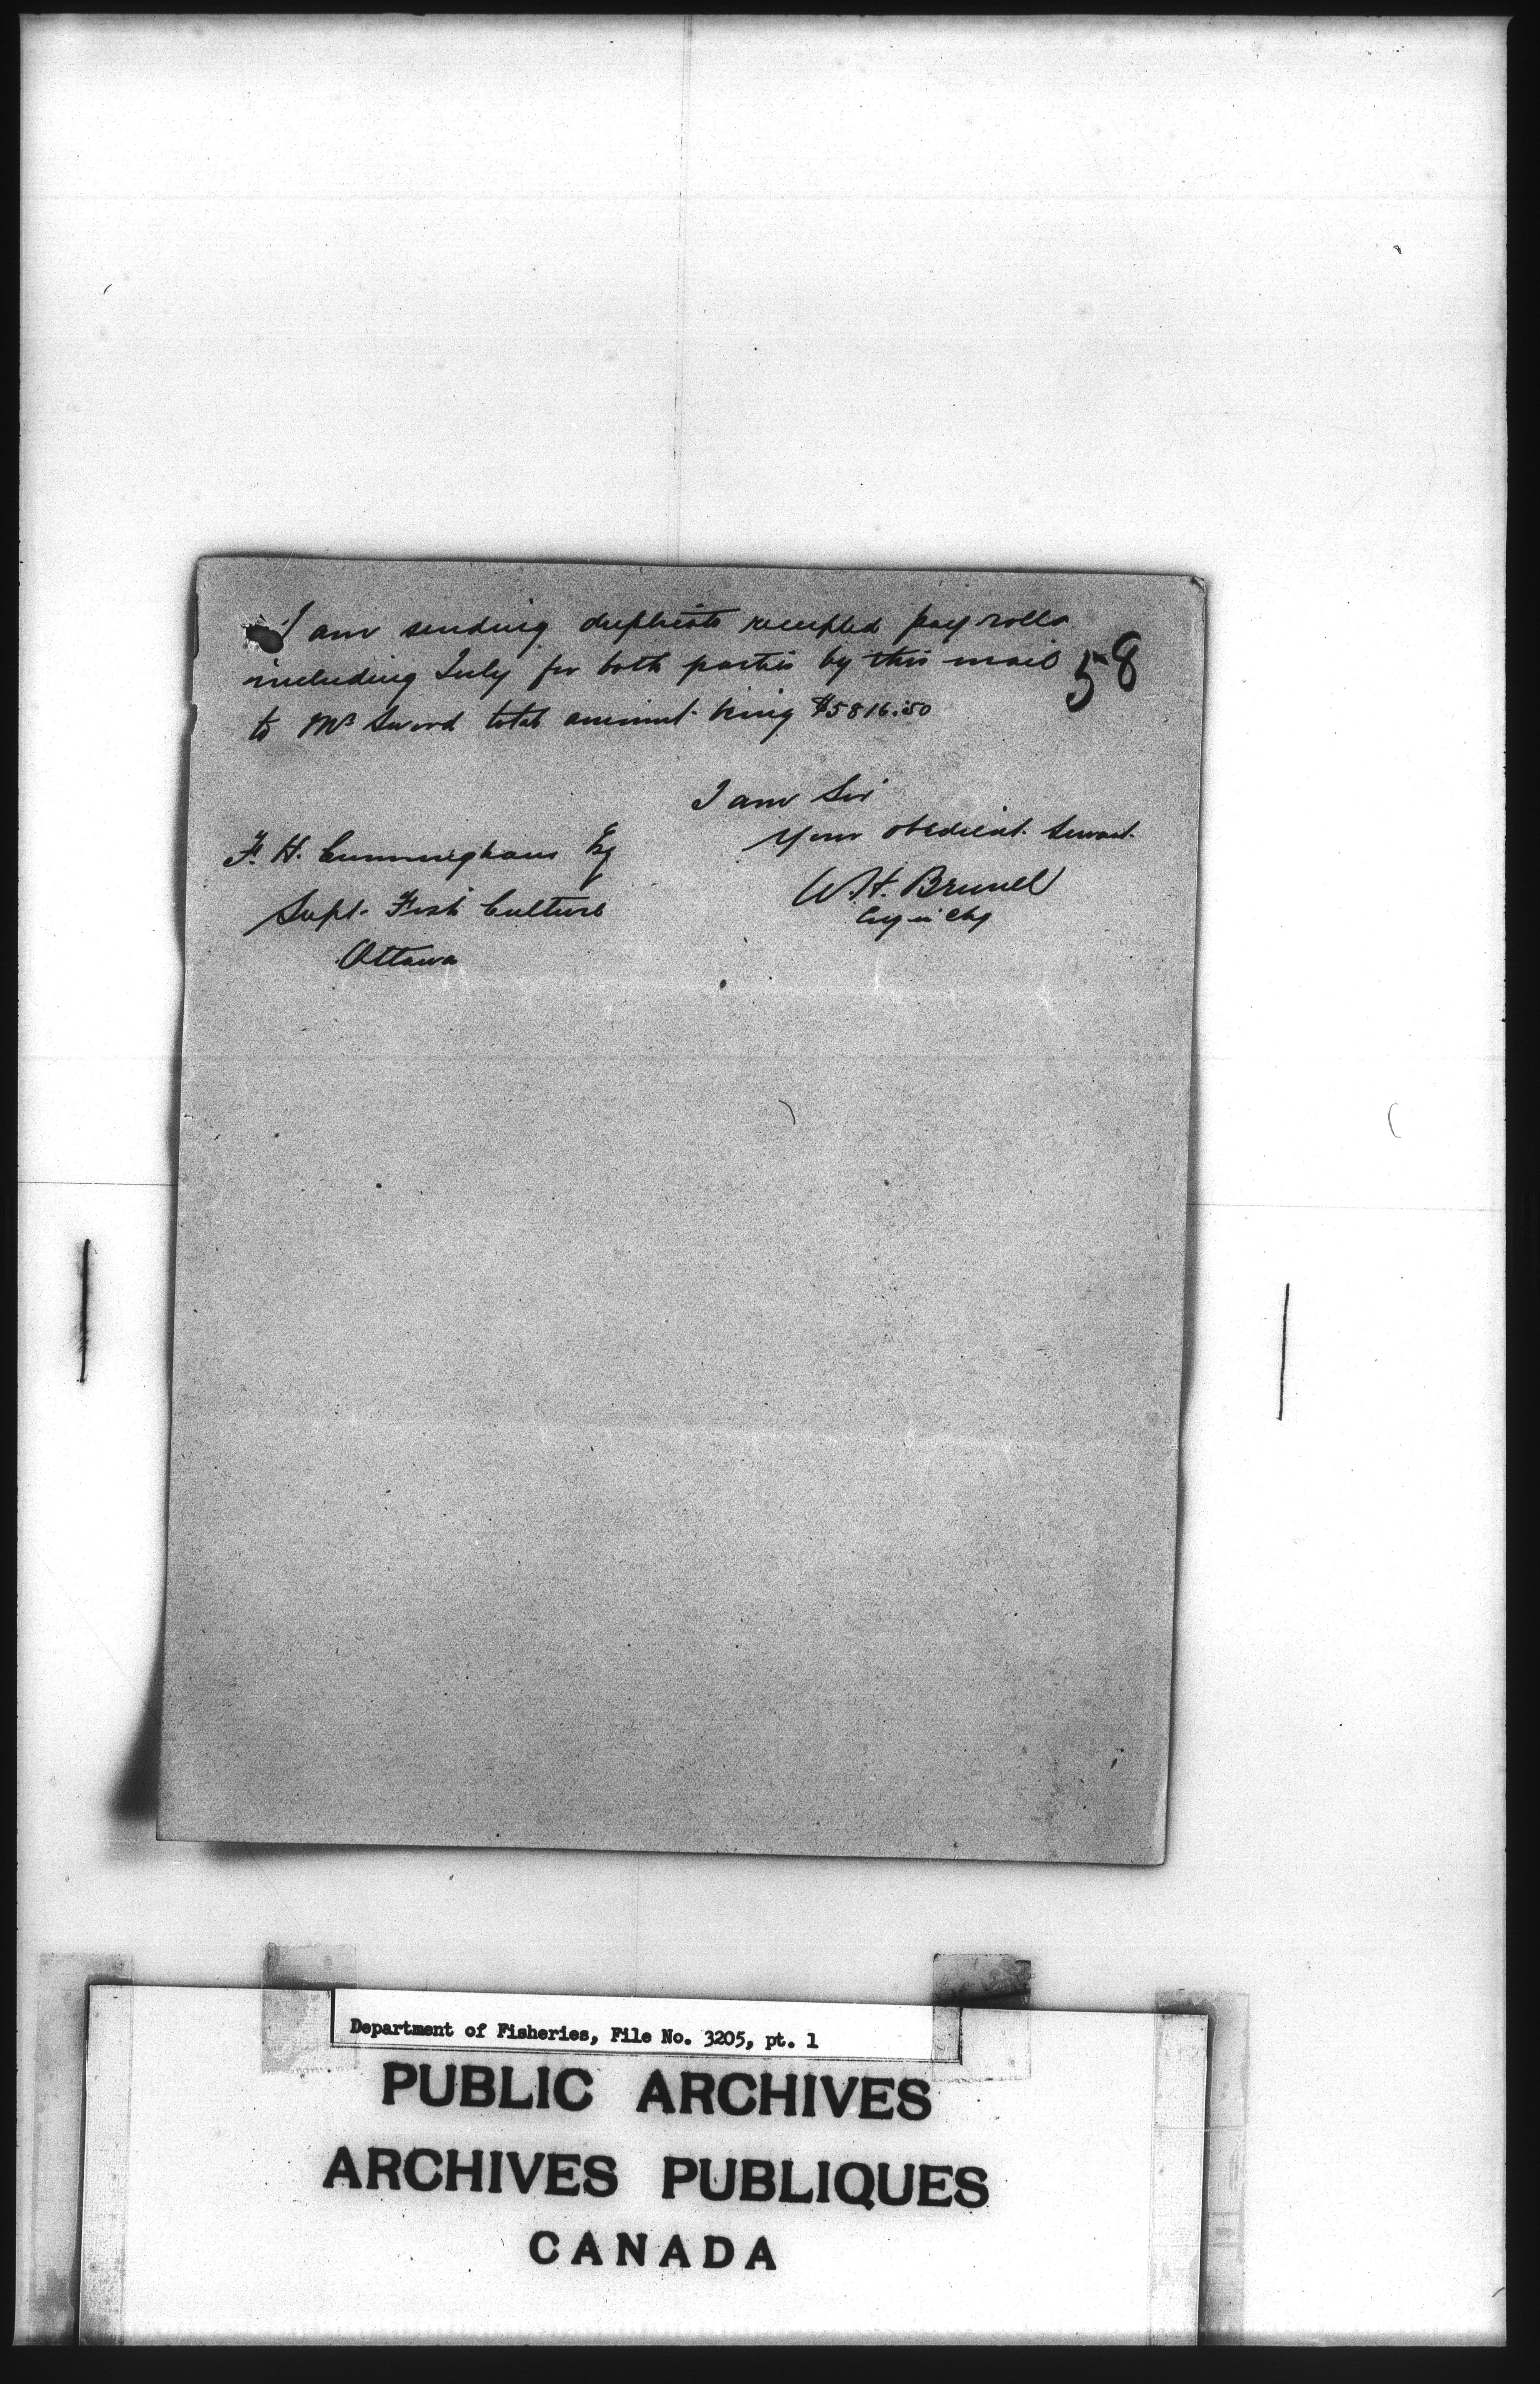 I am sending duplicate receipted pay rolls
including July for both parties by this mail
58
to Mr Sword total amount being $5816.50
I am Sir
Your obedient Servant
F. H. Cunningham Esq
W. H. Brunel
Supt. Fish Culture
Eng in Chg
Ottawa
Department of Fisheries, File No. 3205, pt. 1
PUBLIC ARCHIVES
ARCHIVES PUBLIQUES
CANADA